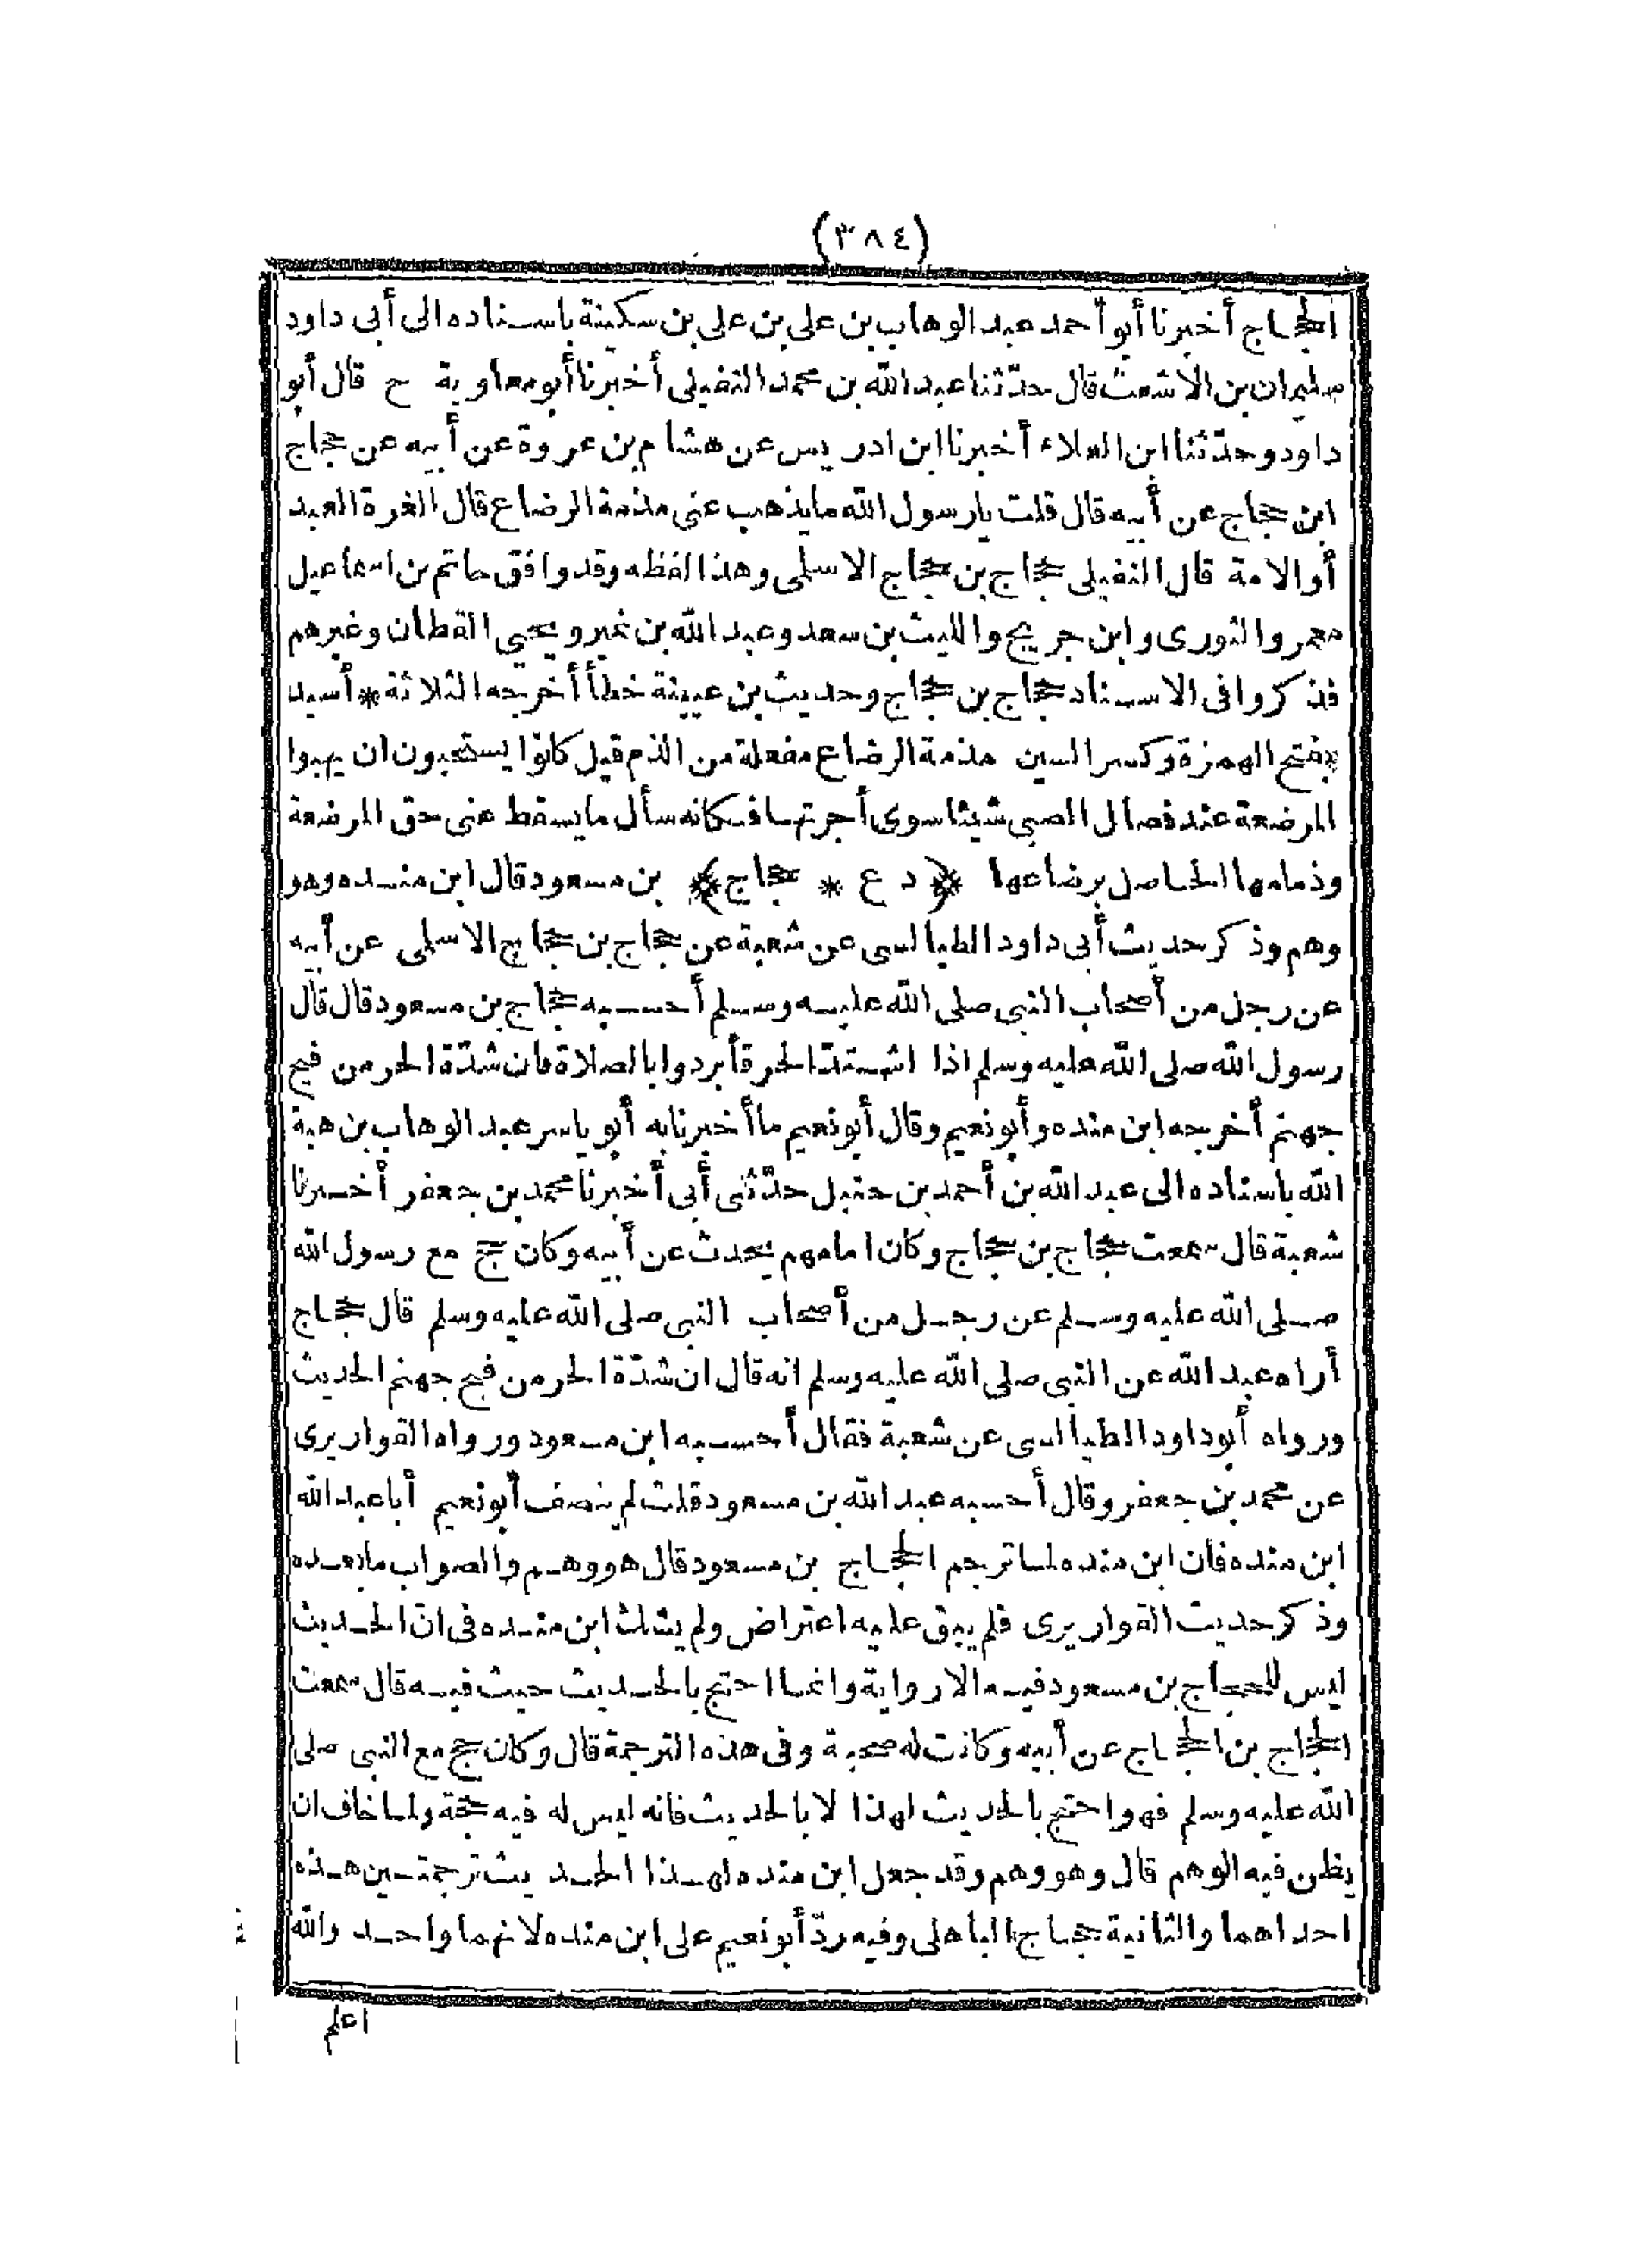 (٣٨٤)
الحجاج أخبرنا أبو أحمد عبد الوهاب بن على بن على بن سكينة باسناده الى أبى داود
سليمان بن الاشعث قال حدّثنا عبد الله بن محمد النفيلى أخبرنا أبو معاوية ح قال أبو
داود وحدّثنا ابن العلاء أخبرنا ابن ادريس عن هشام بن عروة عن أبيه عن حجاج
ابن حجاج عن أبيه قال قلت يارسول الله ما يذهب عنى مذمة الرضاع قال الغرة العبد
أو الامة قال النفيلى حجاج بن حجاج الاسلمى وهذا لفظه وقد وافق حاتم بن اسماعيل
معمر والثورى وابن جريج والليث بن سعد وعبد الله بن نمير ويحيى القطان وغيرهم
فذكروا فى الاسناد حجاج بن حجاج وحديث بن عيينة خطأ أخرجه الثلاثة * أسيد
بفتح الهمزة وكسر السين مذمة الرضاع مفعلة من الذم قيل كانوا يستحبون ان يهبوا
المرضعة عند فصال الصبى شيئا سوى أجرتها فكانه سأل ما يسقط عنى حق المرضعة
وذمامها الحاصل برضاعها ﴿د ع * حجاج﴾ بن مسعود قال ابن منده وهو
وهم وذكر حديث أبى داود الطيالسى عن شعبة عن حجاج بن حجاج الاسلمى عن أبيه
عن رجل من أصحاب النبى صلى الله عليه وسلم أحسبه حجاج بن مسعود قال قال
رسول الله صلى الله عليه وسلم اذا اشتدّ الحر فأبردوا بالصلاة فان شدّة الحر من فيح
جهنم أخرجه ابن منده وأبو نعيم وقال أبو نعيم ما أخبرنا به أبو ياسر عبد الوهاب بن هبة
الله باسناده الى عبد الله بن أحمد بن حنبل حدّثنى أبى أخبرنا محمد بن جعفر أخبرنا
شعبة قال سمعت حجاج بن حجاج وكان امامهم يحدث عن أبيه وكان حج مع رسول الله
صلى الله عليه وسلم عن رجل من أصحاب النبى صلى الله عليه وسلم قال حجاج
أراه عبد الله عن النبى صلى الله عليه وسلم انه قال ان شدّة الحر من فيح جهنم الحديث
ورواه أبو داود الطيالسى عن شعبة فقال أحسبه ابن مسعود ورواه القواريرى
عن محمد بن جعفر وقال أحسبه عبد الله بن مسعود قلت لم ينصف أبو نعيم أبا عبد الله
ابن منده فان ابن منده لما ترجم الحجاج بن مسعود قال هو وهم والصواب ما بعده
وذكر حديث القواريرى فلم يبق عليه اعتراض ولم يشك ابن منده فى ان الحديث
ليس للحجاج بن مسعود فيه الا رواية وانما احتج بالحديث حيث فيه قال سمعت
الحجاج بن الحجاج عن أبيه وكانت له صحبة وفى هذه الترجمة قال وكان حج مع النبى صلى
الله عليه وسلم فهو احتج بالحديث لهذا لا بالحديث فانه ليس له فيه حجة ولما خاف ان
يظن فيه الوهم قال وهو وهم وقد جعل ابن منده لهذا الحديث ترجمتين هذه
احداهما والثانية حجاج الباهلى وفيه ردّ أبو نعيم على ابن منده لانهما واحد والله
اعلم